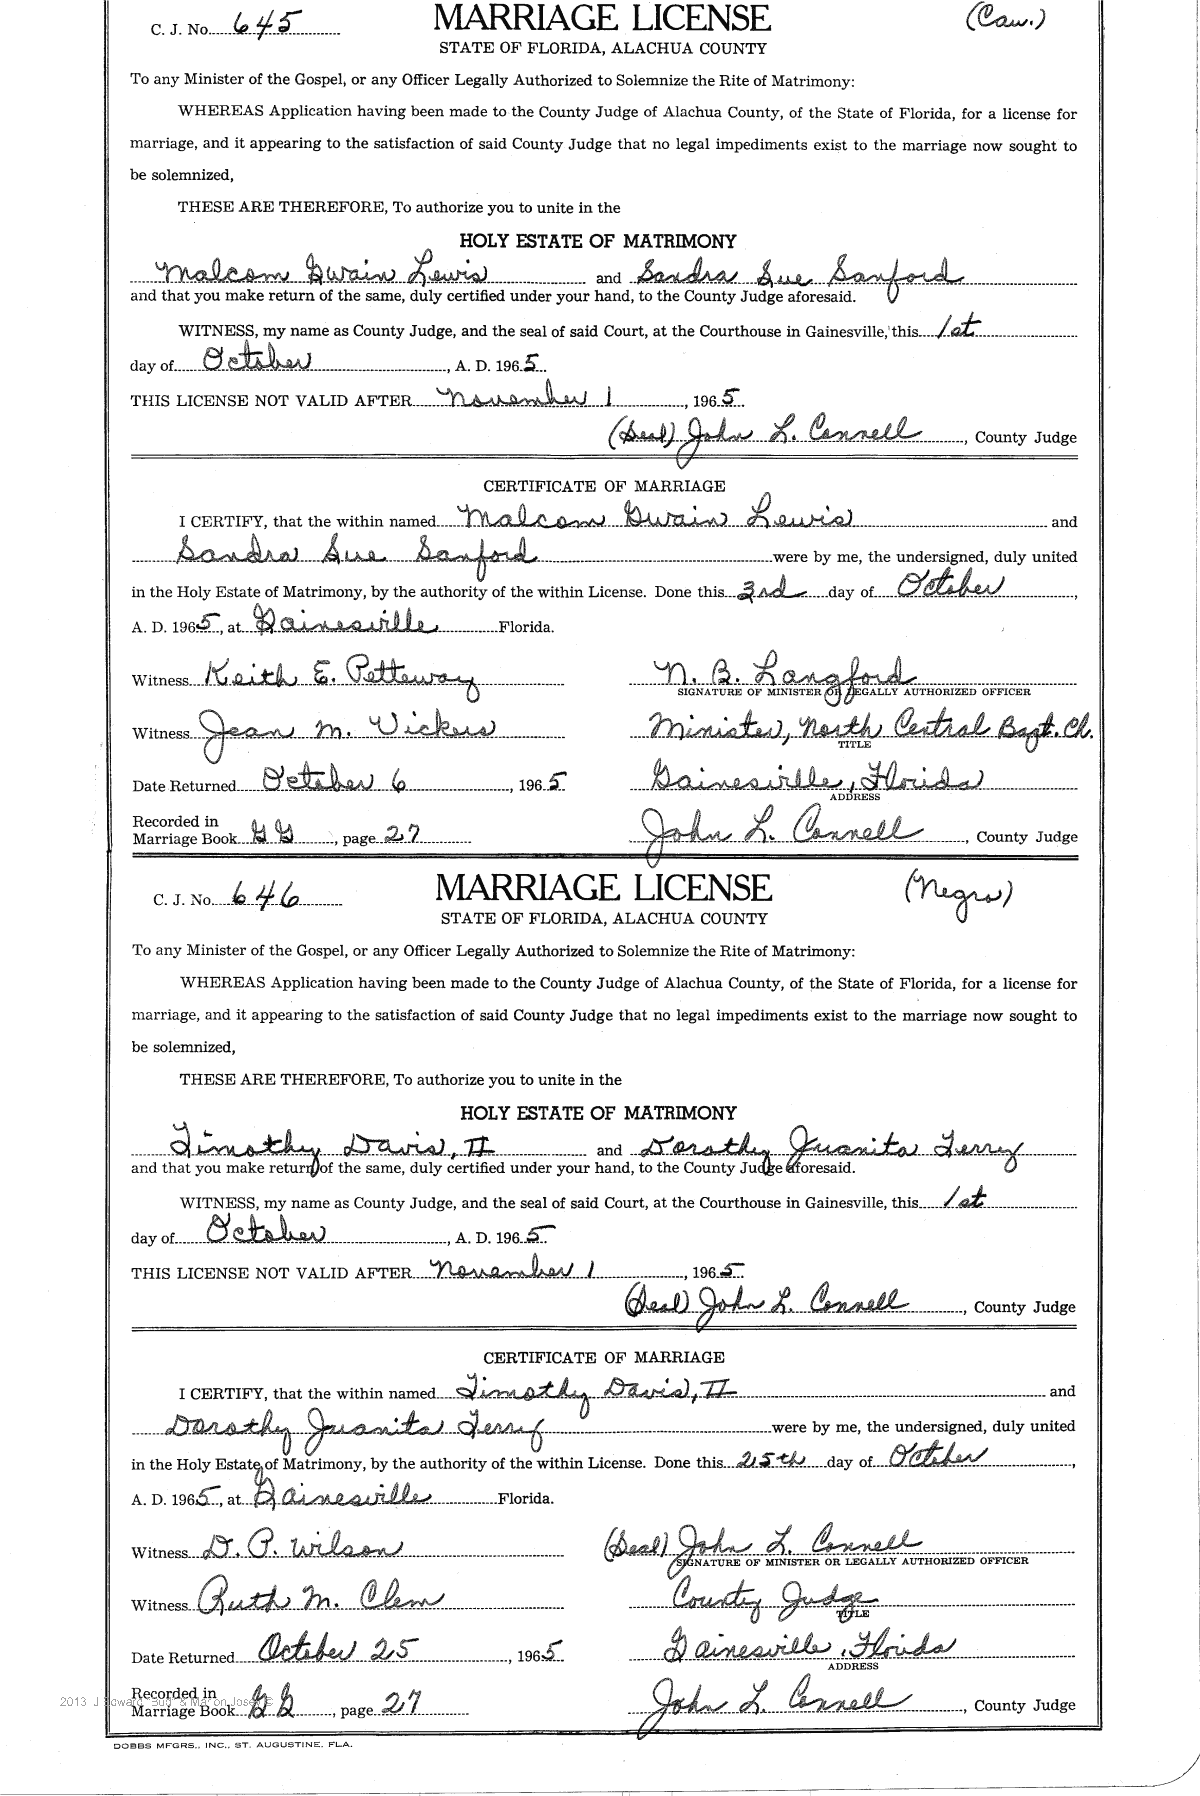 C. J. No. 645 MARRIAGE LICENSE (Cau.)
STATE OF FLORIDA, ALACHUA COUNTY
To any Minister of the Gospel, or any Officer Legally Authorized to Solemnize the Rite of Matrimony:
WHEREAS Application having been made to the County Judge of Alachua County, of the State of Florida, for a license for
marriage, and it appearing to the satisfaction of said County Judge that no legal impediments exist to the marriage now sought to
be solemnized,
THESE ARE THEREFORE, To authorize you to unite in the
HOLY ESTATE OF MATRIMONY
Malcom Gwain Lewis and Sandra Sue Sanford
and that you make return of the same, duly certified under your hand, to the County Judge aforesaid.
WITNESS, my name as County Judge, and the seal of said Court, at the Courthouse in Gainesville, this 1st
day of October, A. D. 1965
THIS LICENSE NOT VALID AFTER November 1, 1965
(Seal) John L. Connell, County Judge
CERTIFICATE OF MARRIAGE
I CERTIFY, that the within named Malcom Gwain Lewis and
Sandra Sue Sanford were by me, the undersigned, duly united
in the Holy Estate of Matrimony, by the authority of the within License. Done this 3rd day of October,
A. D. 1965, at Gainesville Florida.
Witness Keith E. Petteway N. B. Langford
SIGNATURE OF MINISTER OR LEGALLY AUTHORIZED OFFICER
Witness Jean M. Vickers Minister, North Central Bapt. Ch.
TITLE
Date Returned October 6, 1965 Gainesville, Florida
ADDRESS
Recorded in
Marriage Book GG, page 27 John L. Connell, County Judge
C. J. No. 646 MARRIAGE LICENSE (Negro)
STATE OF FLORIDA, ALACHUA COUNTY
To any Minister of the Gospel, or any Officer Legally Authorized to Solemnize the Rite of Matrimony:
WHEREAS Application having been made to the County Judge of Alachua County, of the State of Florida, for a license for
marriage, and it appearing to the satisfaction of said County Judge that no legal impediments exist to the marriage now sought to
be solemnized,
THESE ARE THEREFORE, To authorize you to unite in the
HOLY ESTATE OF MATRIMONY
Timothy Davis, II and Dorothy Juanita Terry
and that you make return of the same, duly certified under your hand, to the County Judge aforesaid.
WITNESS, my name as County Judge, and the seal of said Court, at the Courthouse in Gainesville, this 1st
day of October, A. D. 1965
THIS LICENSE NOT VALID AFTER November 1, 1965
(Seal) John L. Connell, County Judge
CERTIFICATE OF MARRIAGE
I CERTIFY, that the within named Timothy Davis, II and
Dorothy Juanita Terry were by me, the undersigned, duly united
in the Holy Estate of Matrimony, by the authority of the within License. Done this 25th day of October,
A. D. 1965, at Gainesville Florida.
Witness D. P. Wilson (Seal) John L. Connell
SIGNATURE OF MINISTER OR LEGALLY AUTHORIZED OFFICER
Witness Ruth M. Clem County Judge
TITLE
Date Returned October 25, 1965 Gainesville, Florida
ADDRESS
Recorded in
Marriage Book GG, page 27 John L. Connell, County Judge
2013 J Edward
DOBBS MFGRS., INC., ST. AUGUSTINE, FLA.